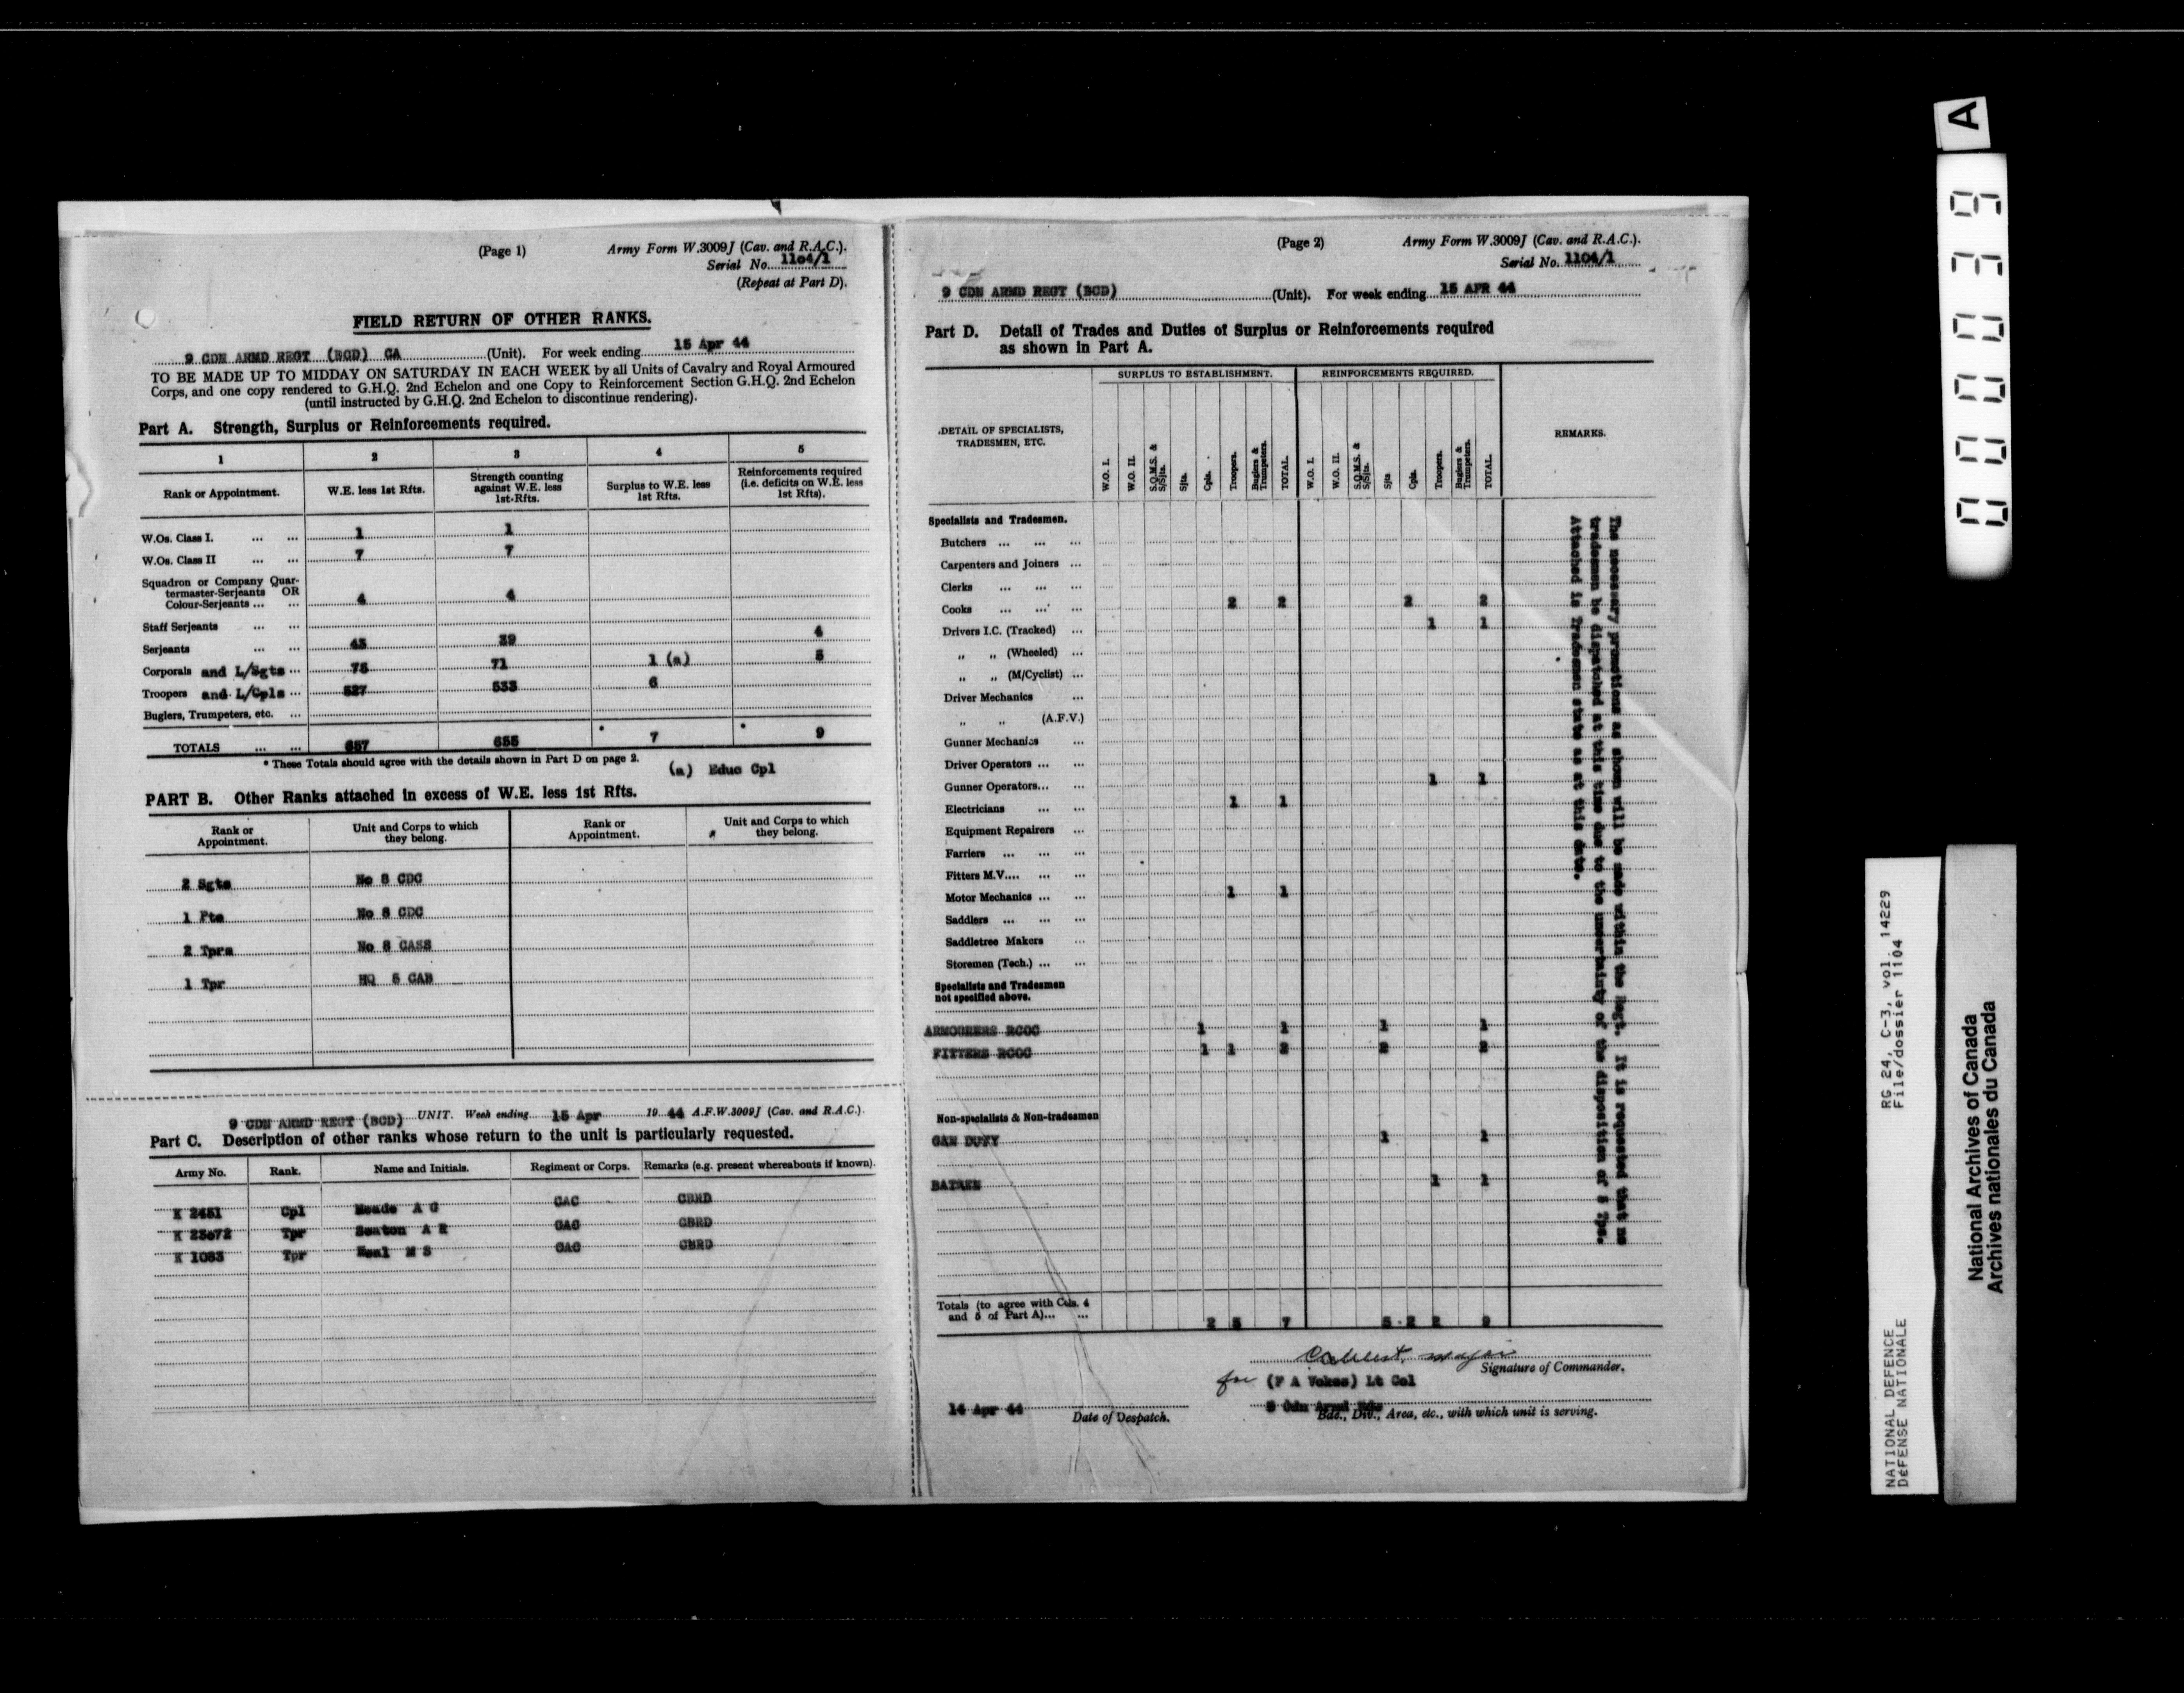 (Page 1) Army Form W.3009J (Cav. and R.A.C.).
Serial No. 1104/1
(Repeat at Part D).
FIELD RETURN OF OTHER RANKS.
9 CDN ARMD REGT (BCD) CA (Unit). For week ending 15 Apr 44
TO BE MADE UP TO MIDDAY ON SATURDAY IN EACH WEEK by all Units of Cavalry and Royal Armoured
Corps, and one copy rendered to G.H.Q. 2nd Echelon and one Copy to Reinforcement Section G.H.Q. 2nd Echelon
(until instructed by G.H.Q. 2nd Echelon to discontinue rendering).
Part A. Strength, Surplus or Reinforcements required.
1 2 3 4 5
Rank or Appointment. W.E. less 1st Rfts. Strength counting against W.E. less 1st-Rfts. Surplus to W.E. less 1st Rfts. Reinforcements required (i.e. deficits on W.E. less 1st Rfts).
W.Os. Class I. ... ... 1 1
W.Os. Class II ... ... 7 7
Squadron or Company Quar-
termaster-Serjeants OR
Colour-Serjeants ... ... 4 4
Staff Serjeants ... ...
Serjeants ... ... 43 39 4
Corporals and L/Sgts ... 75 71 1 (a) 5
Troopers and L/Cpls ... 527 533 6
Buglers, Trumpeters, etc. ...
TOTALS ... ... 657 655 * 7 * 9
* These Totals should agree with the details shown in Part D on page 2.
(a) Educ Cpl
PART B. Other Ranks attached in excess of W.E. less 1st Rfts.
Rank or Appointment. Unit and Corps to which they belong. Rank or Appointment. Unit and Corps to which they belong.
2 Sgts No 8 CDC
1 Pte No 8 CDC
2 Tprs No 8 CASS
1 Tpr HQ 5 CAB
9 CDN ARMD REGT (BCD) UNIT. Week ending 15 Apr 19 44 A.F.W.3009J (Cav. and R.A.C.).
Part C. Description of other ranks whose return to the unit is particularly requested.
Army No. Rank. Name and Initials. Regiment or Corps. Remarks (e.g. present whereabouts if known).
K 2451 Cpl Meade A G CAC CBRD
K 23072 Tpr Seaton A R CAC CBRD
K 1083 Tpr Neal M S CAC CBRD
(Page 2) Army Form W.3009J (Cav. and R.A.C.).
Serial No. 1104/1
9 CDN ARMD REGT (BCD) (Unit). For week ending 15 APR 44
Part D. Detail of Trades and Duties of Surplus or Reinforcements required
as shown in Part A.
DETAIL OF SPECIALISTS, TRADESMEN, ETC. SURPLUS TO ESTABLISHMENT. REINFORCEMENTS REQUIRED. REMARKS.
W.O. I. W.O. II. S.Q.M.S. & S/Sjts. Sjts. Cpls. Troopers. Buglers & Trumpeters. TOTAL. W.O. I. W.O. II. S.Q.M.S. & S/Sjts. Sjts Cpls. Troopers. Buglers & Trumpeters. TOTAL.
Specialists and Tradesmen.
Butchers ... ... ...
Carpenters and Joiners ...
Clerks ... ... ...
Cooks ... ... ... 2 2 2 2
Drivers I.C. (Tracked) ... 1 1
„ „ (Wheeled) ...
„ „ (M/Cyclist) ...
Driver Mechanics ...
„ „ (A.F.V.)
Gunner Mechanics ...
Driver Operators ... ...
Gunner Operators... ... 1 1
Electricians ... ... 1 1
Equipment Repairers ...
Farriers ... ... ...
Fitters M.V.... ... ...
Motor Mechanics ... ... 1 1
Saddlers ... ... ...
Saddletree Makers ...
Storemen (Tech.) ... ...
Specialists and Tradesmen
not specified above.
ARMOURERS RCOC 1 1 1 1
FITTERS RCOC 1 1 2 2 2
Non-specialists & Non-tradesmen
GAN DUTY 1 1
BATMEN 1 1
Totals (to agree with Cols. 4
and 5 of Part A)... ... 2 5 7 5 2 2 9
The necessary promotions as shown will be made within the Regt. It is requested that no
tradesmen be dispatched at this time due to the uncertainty of the disposition of 5 Tps.
Attached is Tradesmen state as at this date.
Major
Signature of Commander.
for (F A Vokes) Lt Col
14 Apr 44 5 Cdn Armd Bde
Date of Despatch. Bde., Div., Area, etc., with which unit is serving.
A
000039
RG 24, C-3, vol. 14229
File/dossier 1104
NATIONAL DEFENCE
DéFENSE NATIONALE
National Archives of Canada
Archives nationales du Canada